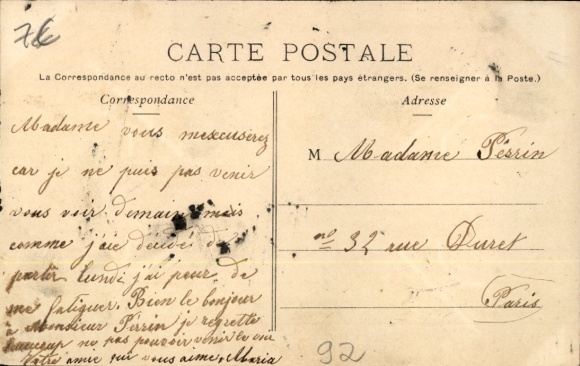 CARTE POSTALE
La Correspondance au recto n'est pas acceptée par tous les pays étrangers. (Se renseigner à la Poste.)
Correspondance
Madame vous mexcuserez
car je ne puis pas venir
vous voir demain mais
comme j'aie décidé de
partir lundi j'ai peur de
me fatiguer. Bien le bonjour
à Monsieur Perrin je regrette
beaucoup ne pas pouvoir venir
Votre amie qui vous aime, Maria
Adresse
M Madame Perrin
no 32 rue Duret
Paris
92